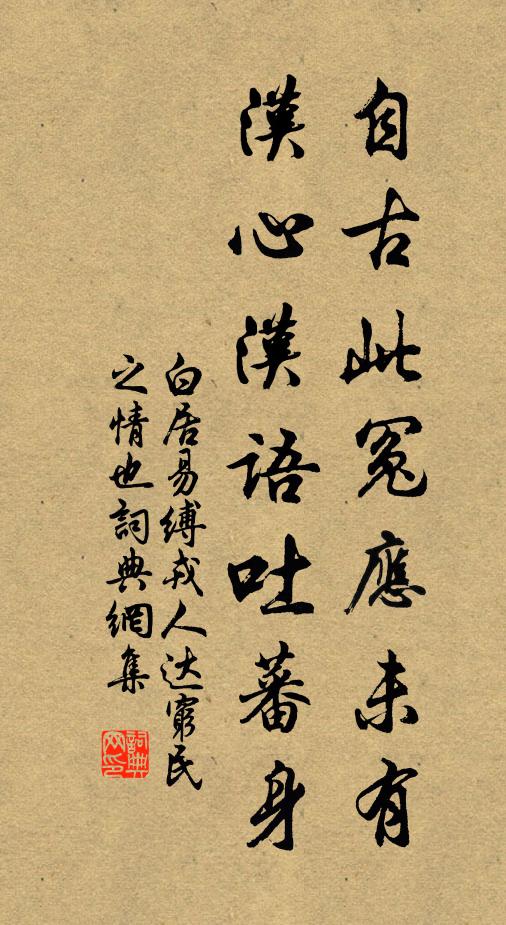 自古此冤應未有
漢心漢語吐蕃身
白居易縛戎人达窮民
之情也詞典網集
詞典
网印